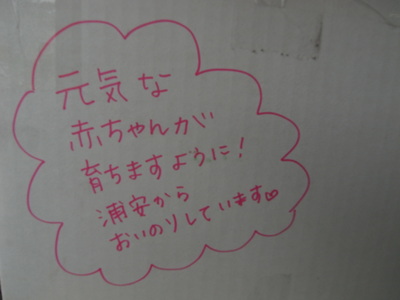 元気な
赤ちゃんが
育ちますように!
浦安から
おいのりしています♡